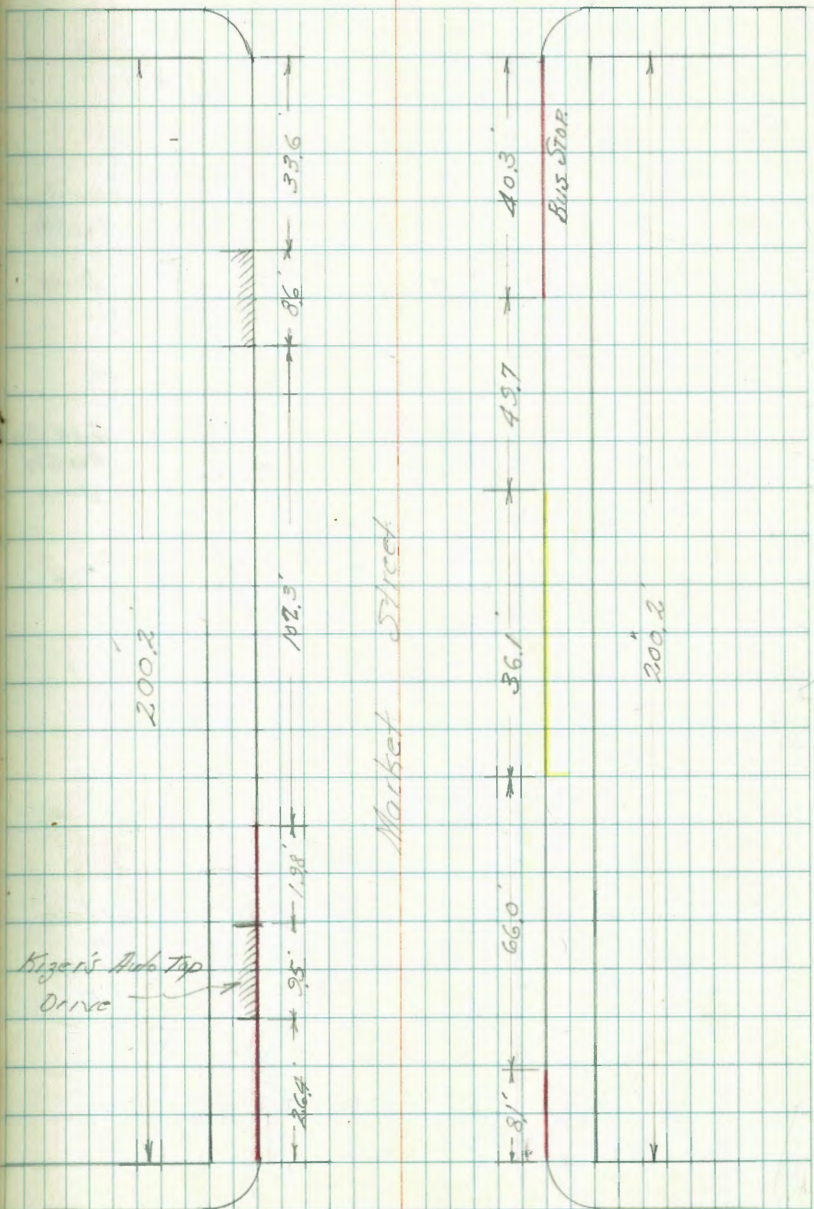 33.6'
8.6'
102.3'
1.98'
9.5'
26.4'
200.2'
Kizer's Auto Top
Drive
Market Street
40.3'
BUS STOP.
49.7
36.1'
66.0'
8.1'
200.2'